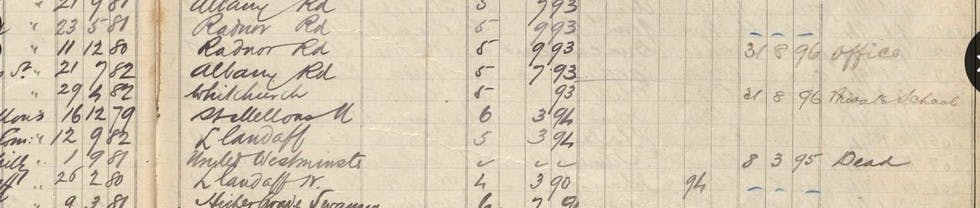 21 9 81 Albany Rd 5 7 93
" 23 5 81 Radnor Rd 5 9 93
" 11 12 80 Radnor Rd 5 9 93 31 8 96 Office
" 21 7 82 Albany Rd 5 7 93
" 29 4 82 Whitchurch 5 93 31 8 96 Private School
16 12 79 St Mellons 6 3 94
12 9 82 Llandaff 5 3 94
" 1 9 81 United Westminste 8 3 95 Dead
" 26 2 80 Llandaff N. 4 3 90 94
9 3 81 Higher Grade Swansea 6 7